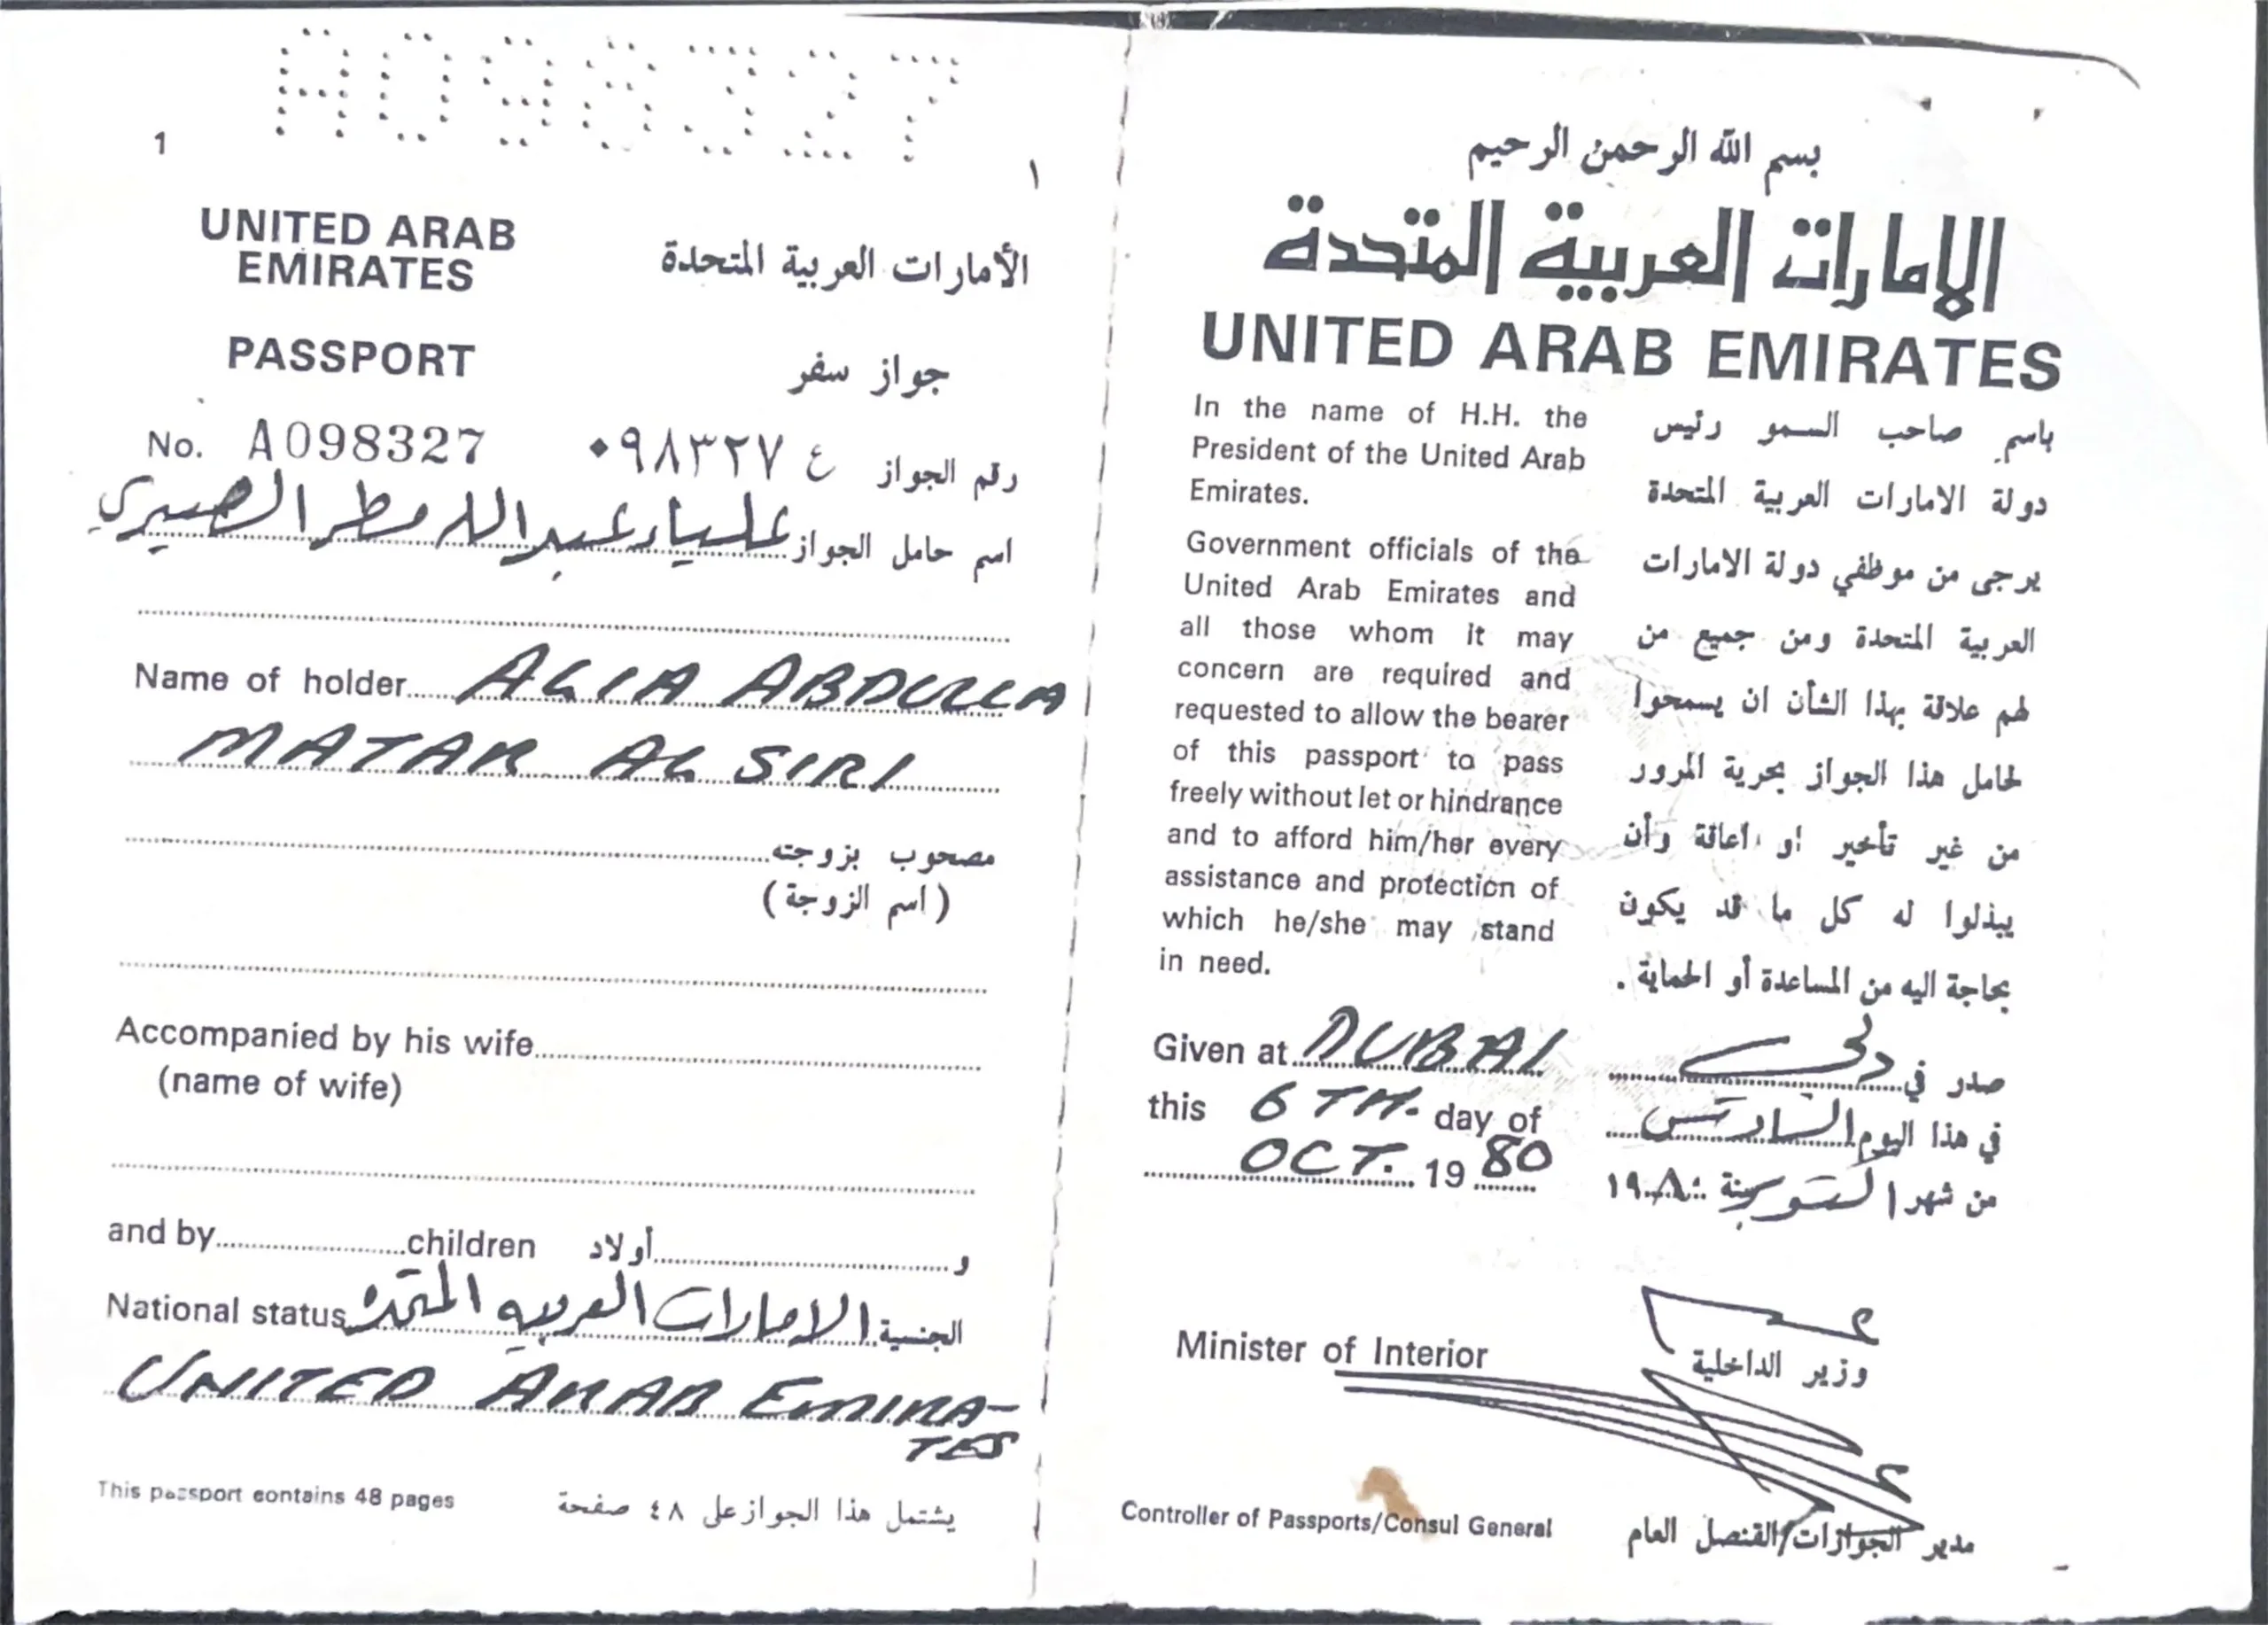 A098327
1
١
UNITED ARAB EMIRATES
الأمارات العربية المتحدة
PASSPORT
جواز سفر
No. A098327
رقم الجواز ع ٠٩٨٣٢٧
اسم حامل الجواز علياء عبدالله مطر الصيري
Name of holder ALIA ABDULLA
MATAR AL SIRI
مصحوب بزوجته
(اسم الزوجة)
Accompanied by his wife
(name of wife)
and by children
و أولاد
National status
الجنسية الامارات العربيه المتحده
UNITED ARAB EMIRA-
TES
This passport contains 48 pages
يشتمل هذا الجواز على ٤٨ صفحة
بسم الله الرحمن الرحيم
الامارات العربية المتحدة
UNITED ARAB EMIRATES
In the name of H.H. the
President of the United Arab
Emirates.
Government officials of the
United Arab Emirates and
all those whom it may
concern are required and
requested to allow the bearer
of this passport to pass
freely without let or hindrance
and to afford him/her every
assistance and protection of
which he/she may stand
in need.
باسم صاحب السمو رئيس
دولة الامارات العربية المتحدة
يرجى من موظفي دولة الامارات
العربية المتحدة ومن جميع من
لهم علاقة بهذا الشأن ان يسمحوا
لحامل هذا الجواز بحرية المرور
من غير تأخير او اعاقة وأن
يبذلوا له كل ما قد يكون
بحاجة اليه من المساعدة أو الحماية .
Given at DUBAI
this 6TH. day of
OCT. 1980
صدر في دبي
في هذا اليوم السادس
من شهر اكتوبر سنة ١٩٨٠
Minister of Interior
وزير الداخلية
Controller of Passports/Consul General
مدير الجوازات/القنصل العام